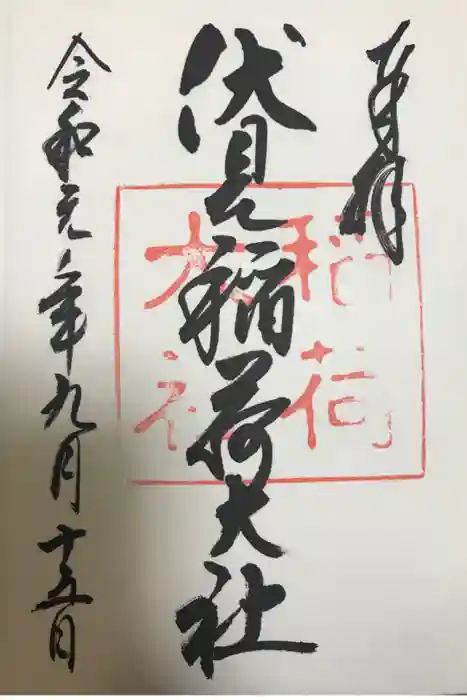 奉拝
伏見稲荷大社
令和元年九月十五日
稲荷
大社